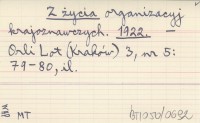 Z życia organizacyj
krajoznawczych. 1922. —
Orli Lot (Kraków) 3, nr 5:
79-80, il.
MT